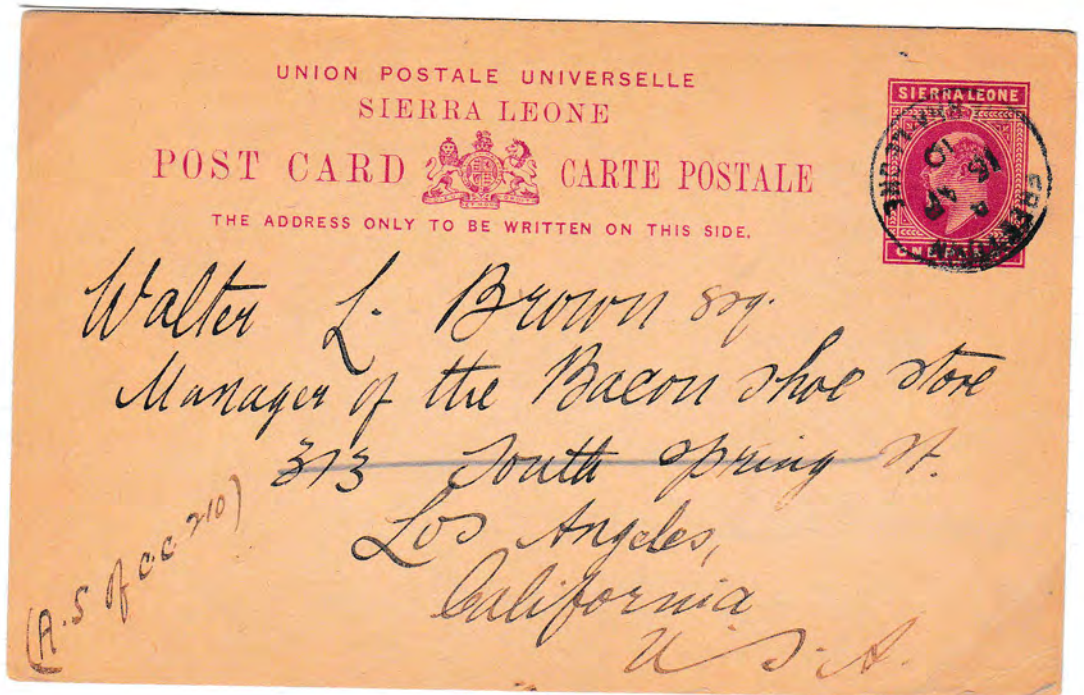 UNION POSTALE UNIVERSELLE
SIERRA LEONE
POST CARD CARTE POSTALE
THE ADDRESS ONLY TO BE WRITTEN ON THIS SIDE.
SIERRA LEONE
ONE PENNY
FREETOWN
SIERRA LEONE
Walter L. Brown Esq.
Manager of the Bacon Shoe Store
313 South Spring St.
Los Angeles,
California
U S. A.
(A.S of C.C 210)